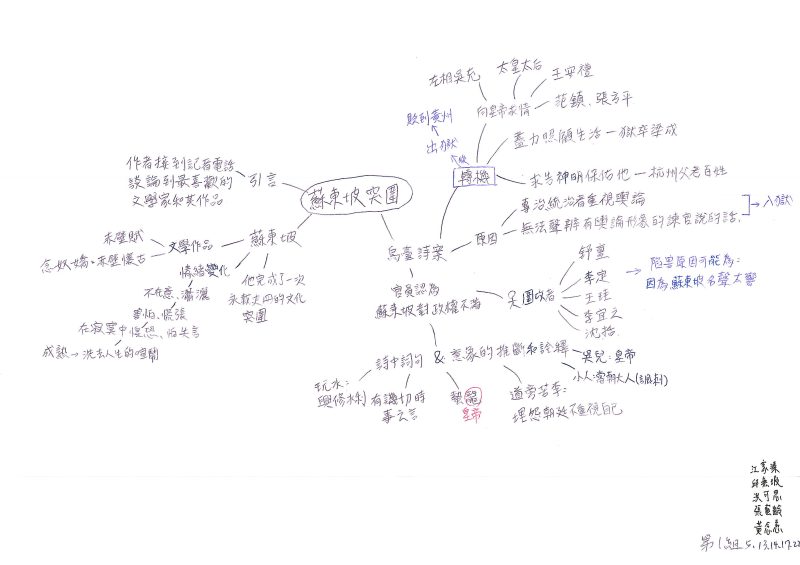 左相吳充
太皇太后
王安禮
范鎮、張方平
向皇帝求情
貶到黃州
出獄
盡力照顧生活一獄卒梁成
轉機
求告神明保佑他一杭州父老百姓
作者接到記者電話
談論到最喜歡的
文學家和其作品
引言
蘇東坡突圍
專治統治者重視輿論
原因
無法聲辯有輿論形象的諫官說的話.
→入獄
赤壁賦
念奴嬌·赤壁懷古
文學作品
蘇東坡
情緒變化
不在意、瀟灑
害怕、慌張
在寂寞中惶恐、怕失言
成熟→洗去人生的喧鬧
他完成了一次
永載史冊的文化
突圍
烏臺詩案
官員認為
蘇東坡對政權不滿
圍攻者
舒亶
李定
王珪
李宜之
沈括
→陷害原因可能為:
因為蘇東坡名聲太響
詩中詞句
&
意象的推斷和詮釋
吳兒:皇帝
小人:當朝大人(諷刺)
玩水:
興修水利
有譏切時
事之言
蟄龍
皇帝
道旁苦李:
埋怨朝廷不重視自己
第1組 5.13.14.17.22